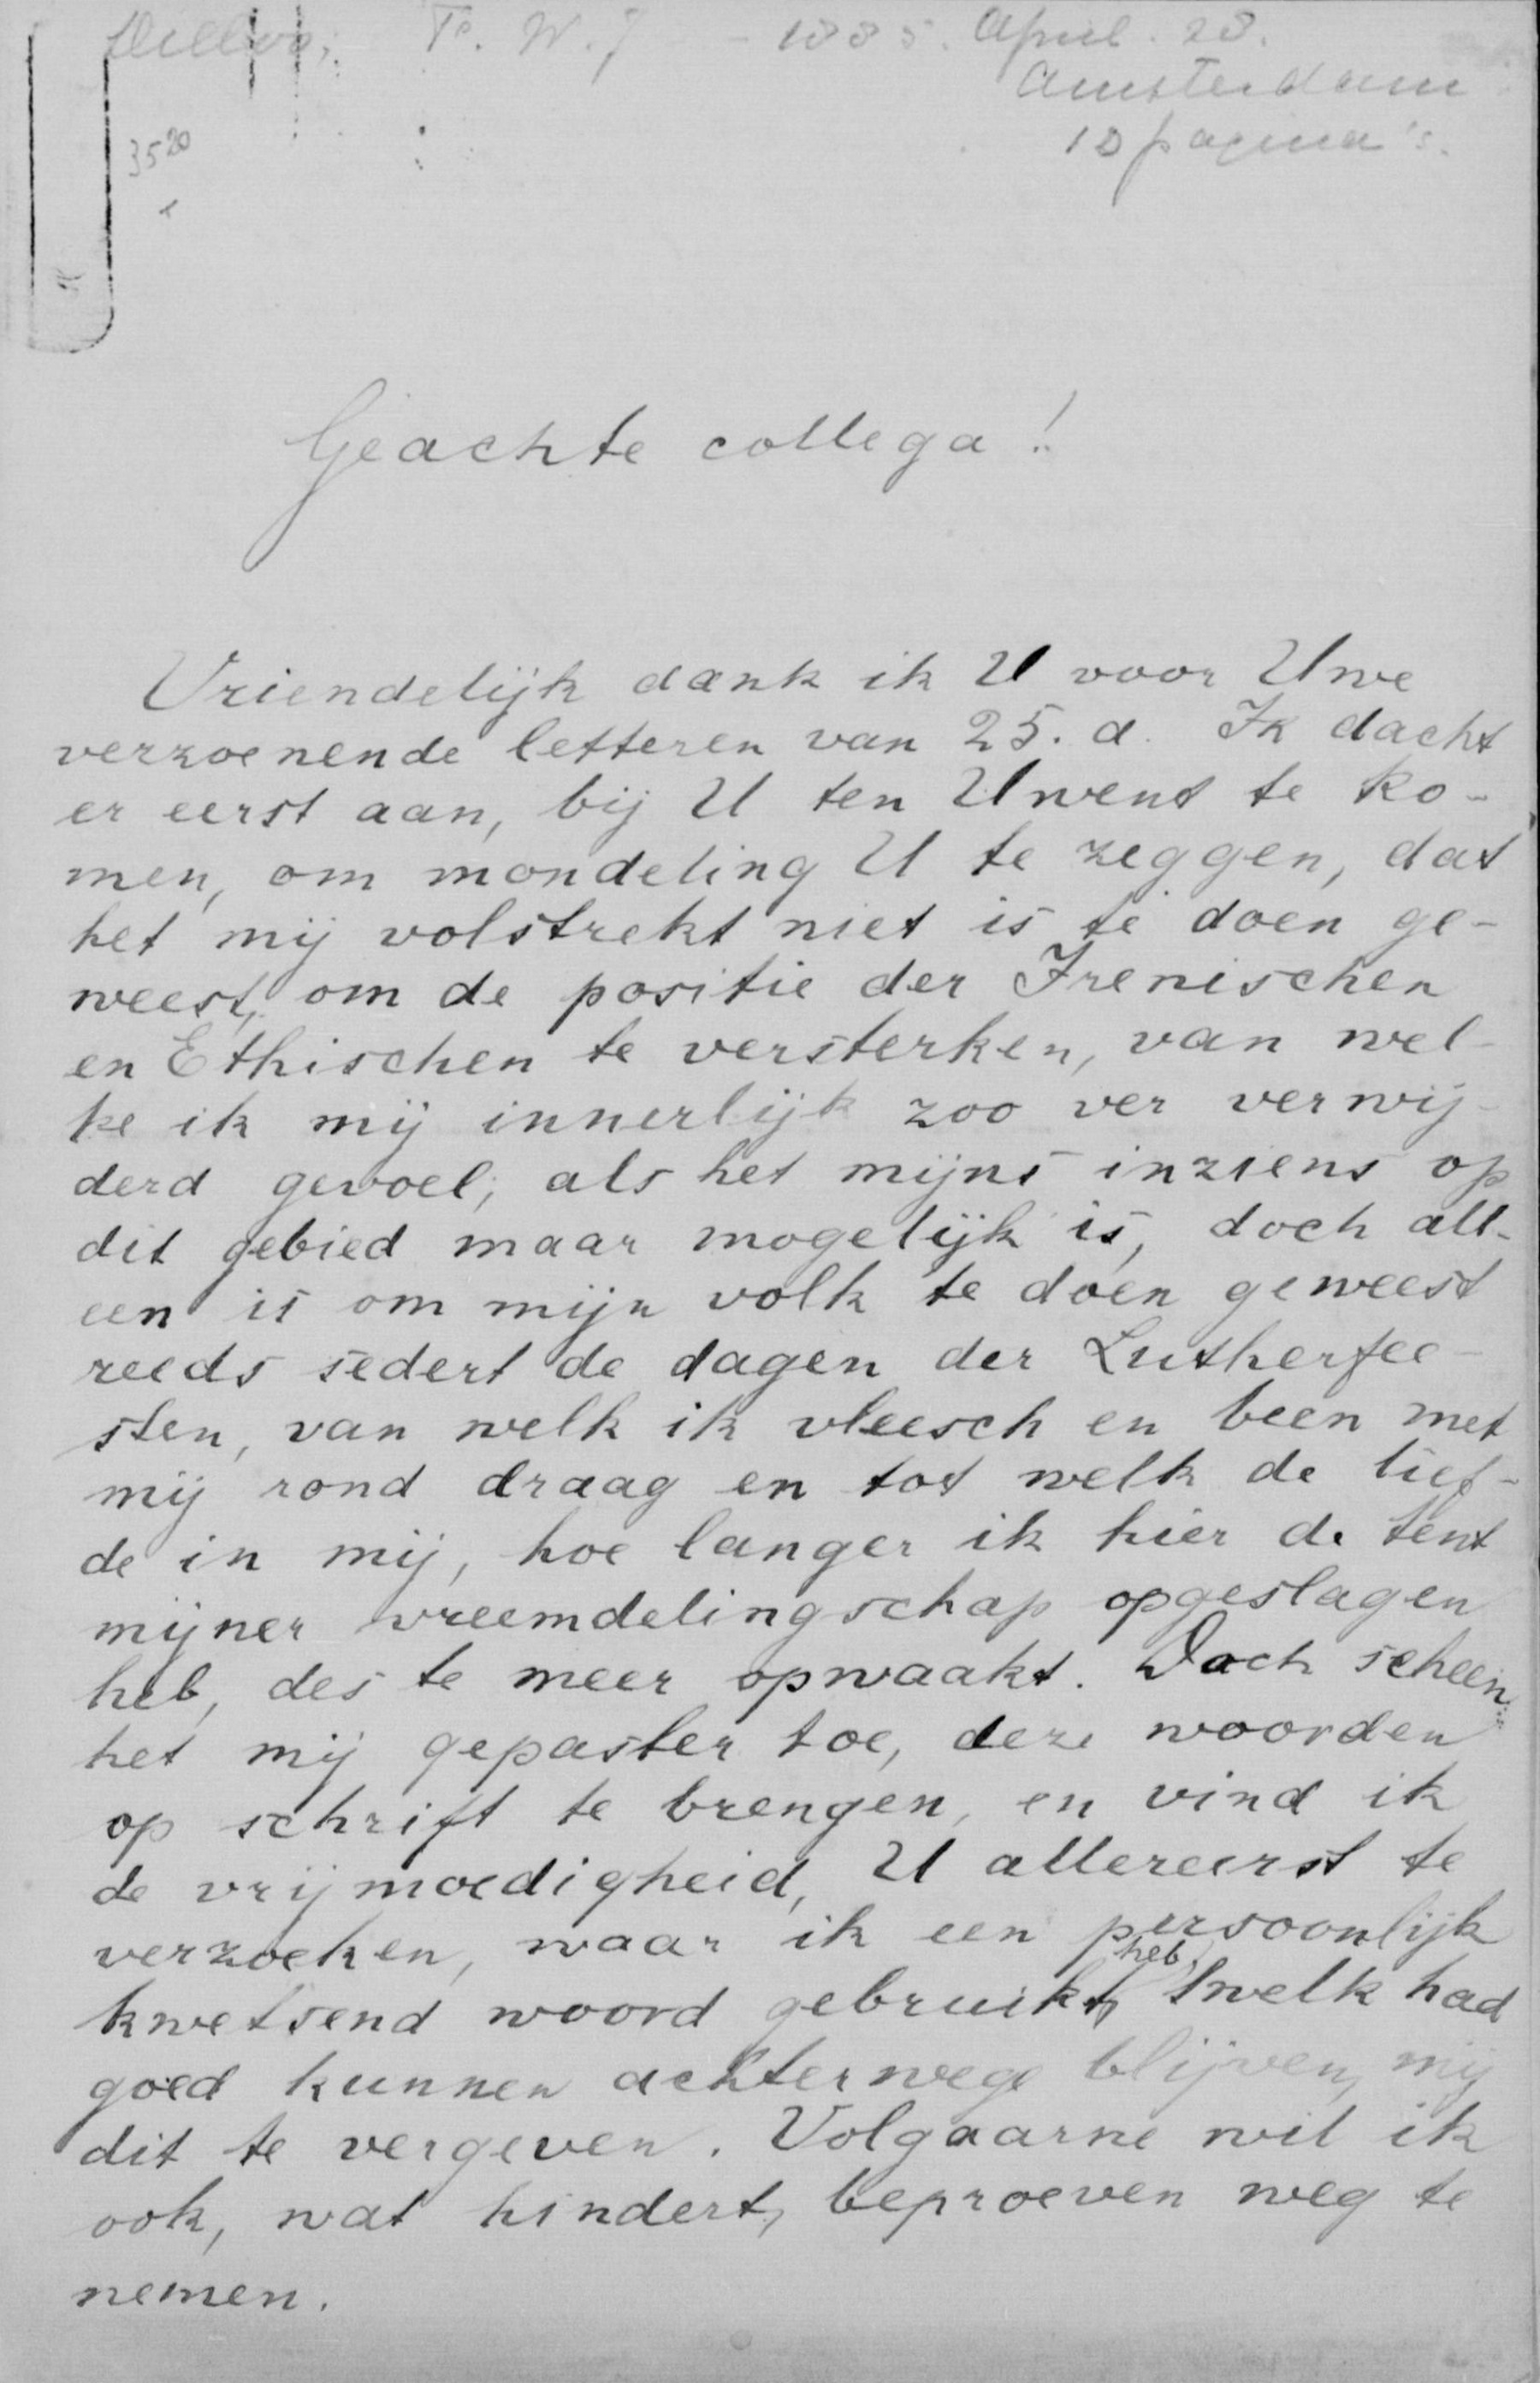 Dilloo, F. W. J - 1885. April. 28.
Amsterdam
10 pagina's.
3520
Geachte collega!
Vriendelijk dank ik U voor Uwe
verzoenende letteren van 25. d. Ik dacht
er eerst aan, bij U ten Uwent te ko-
men, om mondeling U te zeggen, dat
het mij volstrekt niet is te doen ge-
weest, om de positie der Irenischen
en Ethischen te versterken, van wel-
ke ik mij innerlijk zoo ver verwij-
derd gevoel, als het mijns inziens op
dit gebied maar mogelijk is, doch all-
een is om mijn volk te doen geweest
reeds sedert de dagen der Lutherfee-
sten, van welk ik vleesch en been met
mij rond draag en tot welk de lief-
de in mij, hoe langer ik hier de tent
mijner vreemdelingschap opgeslagen
heb, des te meer opwaakt. Doch scheen
het mij gepaster toe, deze woorden
op schrift te brengen, en vind ik
de vrijmoedigheid, U allereerst te
verzoeken, waar ik een persoonlijk
kwetsend woord gebruikt heb, 'twelk had
goed kunnen achterwege blijven, mij
dit te vergeven. Volgaarne wil ik
ook, wat hindert, beproeven weg te
nemen.